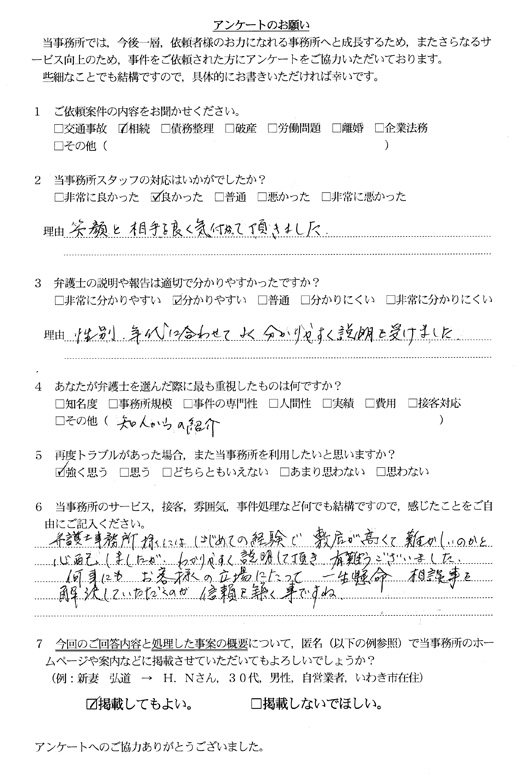 アンケートのお願い
当事務所では，今後一層，依頼者様のお力になれる事務所へと成長するため，またさらなるサ
ービス向上のため，事件をご依頼された方にアンケートをご協力いただいております。
些細なことでも結構ですので，具体的にお書きいただければ幸いです。
1 ご依頼案件の内容をお聞かせください。
□交通事故 ☑相続 □債務整理 □破産 □労働問題 □離婚 □企業法務
□その他（ ）
2 当事務所スタッフの対応はいかがでしたか？
□非常に良かった ☑良かった □普通 □悪かった □非常に悪かった
理由 笑顔と相手を良く気付かって頂きました．
3 弁護士の説明や報告は適切で分かりやすかったですか？
□非常に分かりやすい ☑分かりやすい □普通 □分かりにくい □非常に分かりにくい
理由 性別、年代に合わせてよく分かりやすく説明を受けました．
4 あなたが弁護士を選んだ際に最も重視したものは何ですか？
□知名度 □事務所規模 □事件の専門性 □人間性 □実績 □費用 □接客対応
□その他（ 知人からの紹介 ）
5 再度トラブルがあった場合，また当事務所を利用したいと思いますか？
☑強く思う □思う □どちらともいえない □あまり思わない □思わない
6 当事務所のサービス，接客，雰囲気，事件処理など何でも結構ですので，感じたことをご自
由にご記入ください。
弁護士事務所様にははじめての経験で敷居が高くて難かしいのかと
心配しましたが、わかりやすく説明して頂き有難うございました．
何事にもお客様の立場にたって一生懸命相談事を
解決していただくのが信頼を築く事ですね．
7 今回のご回答内容と処理した事案の概要について，匿名（以下の例参照）で当事務所のホー
ムページや案内などに掲載させていただいてもよろしいでしょうか？
（例：新妻 弘道 → H．Nさん，３０代，男性，自営業者，いわき市在住）
☑掲載してもよい。 □掲載しないでほしい。
アンケートへのご協力ありがとうございました。